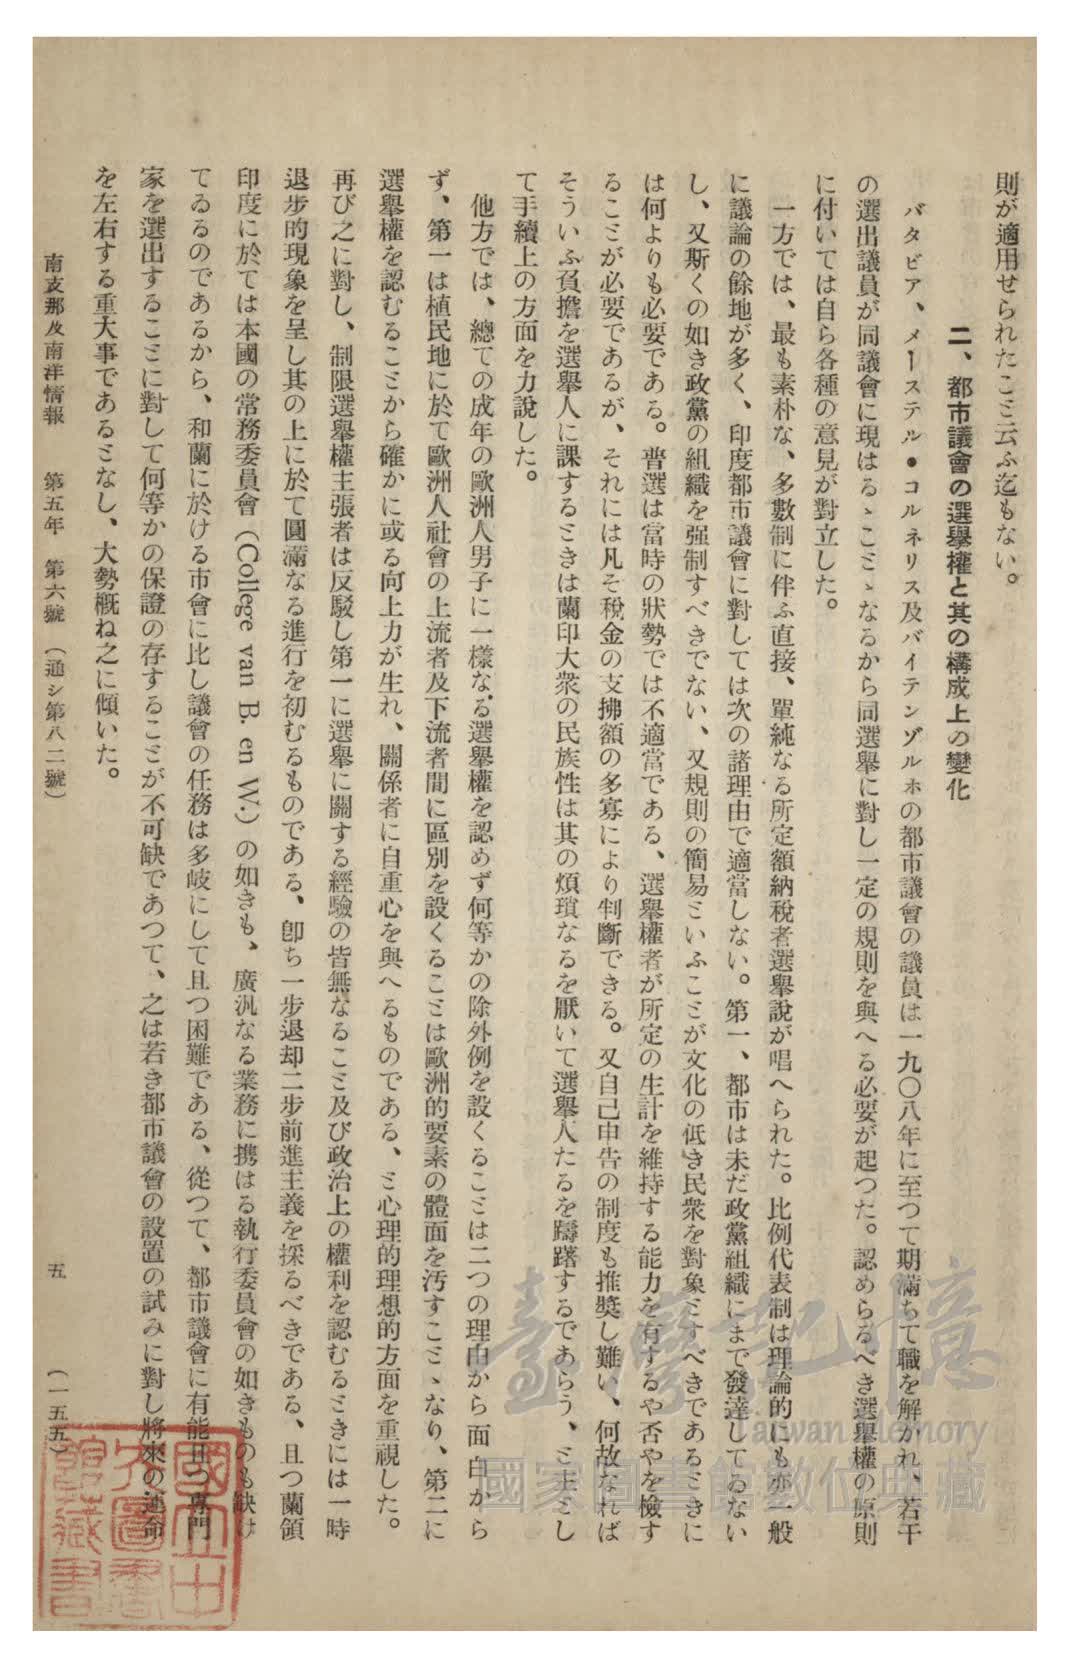 則が適用せられたこミ云ふ迄もない。
二、都市議會の選擧權と其の構成上の變化
バタビア、メーステル・コルネリス及バイテンゾルホの都市議會の議員は一九〇八年に至つて期滿ちて職を解かれ、若干
の選出議員が同議會に現はるゝこミゝなるから同選擧に對し一定の規則を與へる必要が起つた。認めらるべき選擧權の原則
に付いては自ら各種の意見が對立した。
一方では、最も素朴な、多數制に伴ふ直接、單純なる所定額納稅者選擧說が唱へられた。比例代表制は理論的にも亦一般
に議論の餘地が多く、印度都市議會に對しては次の諸理由で適當しない。第一、都市は未だ政黨組織にまで發達してゐない
し、又斯くの如き政黨の組織を强制すべきでない、又規則の簡易ミいふこミが文化の低き民衆を對象ミすべきであるミきに
は何よりも必要である。普選は當時の狀勢では不適當である、選擧權者が所定の生計を維持する能力を有するや否やを檢す
るこミが必要であるが、それには凡そ稅金の支拂額の多寡により判斷できる。又自己申告の制度も推奬し難い、何故なれば
そういふ負擔を選擧人に課するミきは蘭印大衆の民族性は其の煩瑣なるを厭いて選擧人たるを躊躇するであらう、ミ主ミし
て手續上の方面を力說した。
他方では、總ての成年の歐洲人男子に一樣なる選擧權を認めず何等かの除外例を設くるこミは二つの理由から面白から
ず、第一は植民地に於て歐洲人社會の上流者及下流者間に區別を設くるこミは歐洲的要素の體面を汚すこミゝなり、第二に
選擧權を認むるこミから確かに或る向上力が生れ、關係者に自重心を與へるものである、ミ心理的理想的方面を重視した。
再び之に對し、制限選擧權主張者は反駁し第一に選擧に關する經驗の皆無なるこミ及び政治上の權利を認むるミきには一時
退步的現象を呈し其の上に於て圓滿なる進行を初むるものである、卽ち一步退却二步前進主義を採るべきである、且つ蘭領
印度に於ては本國の常務委員會（College van B. en W.）の如きも、廣汎なる業務に携はる執行委員會の如きものも缺け
てゐるのであるから、和蘭に於ける市會に比し議會の任務は多岐にして且つ困難である、從つて、都市議會に有能且つ專門
家を選出するこミに對して何等かの保證の存するこミが不可缺であつて、之は若き都市議會の設置の試みに對し將來の運命
を左右する重大事であるミなし、大勢槪ね之に傾いた。
南支那及南洋情報 第五年 第六號 （通シ第八二號） 五 （一五五）
臺灣記憶
Taiwan Memory
國家圖書館數位典藏
國立中
央圖書
館藏書